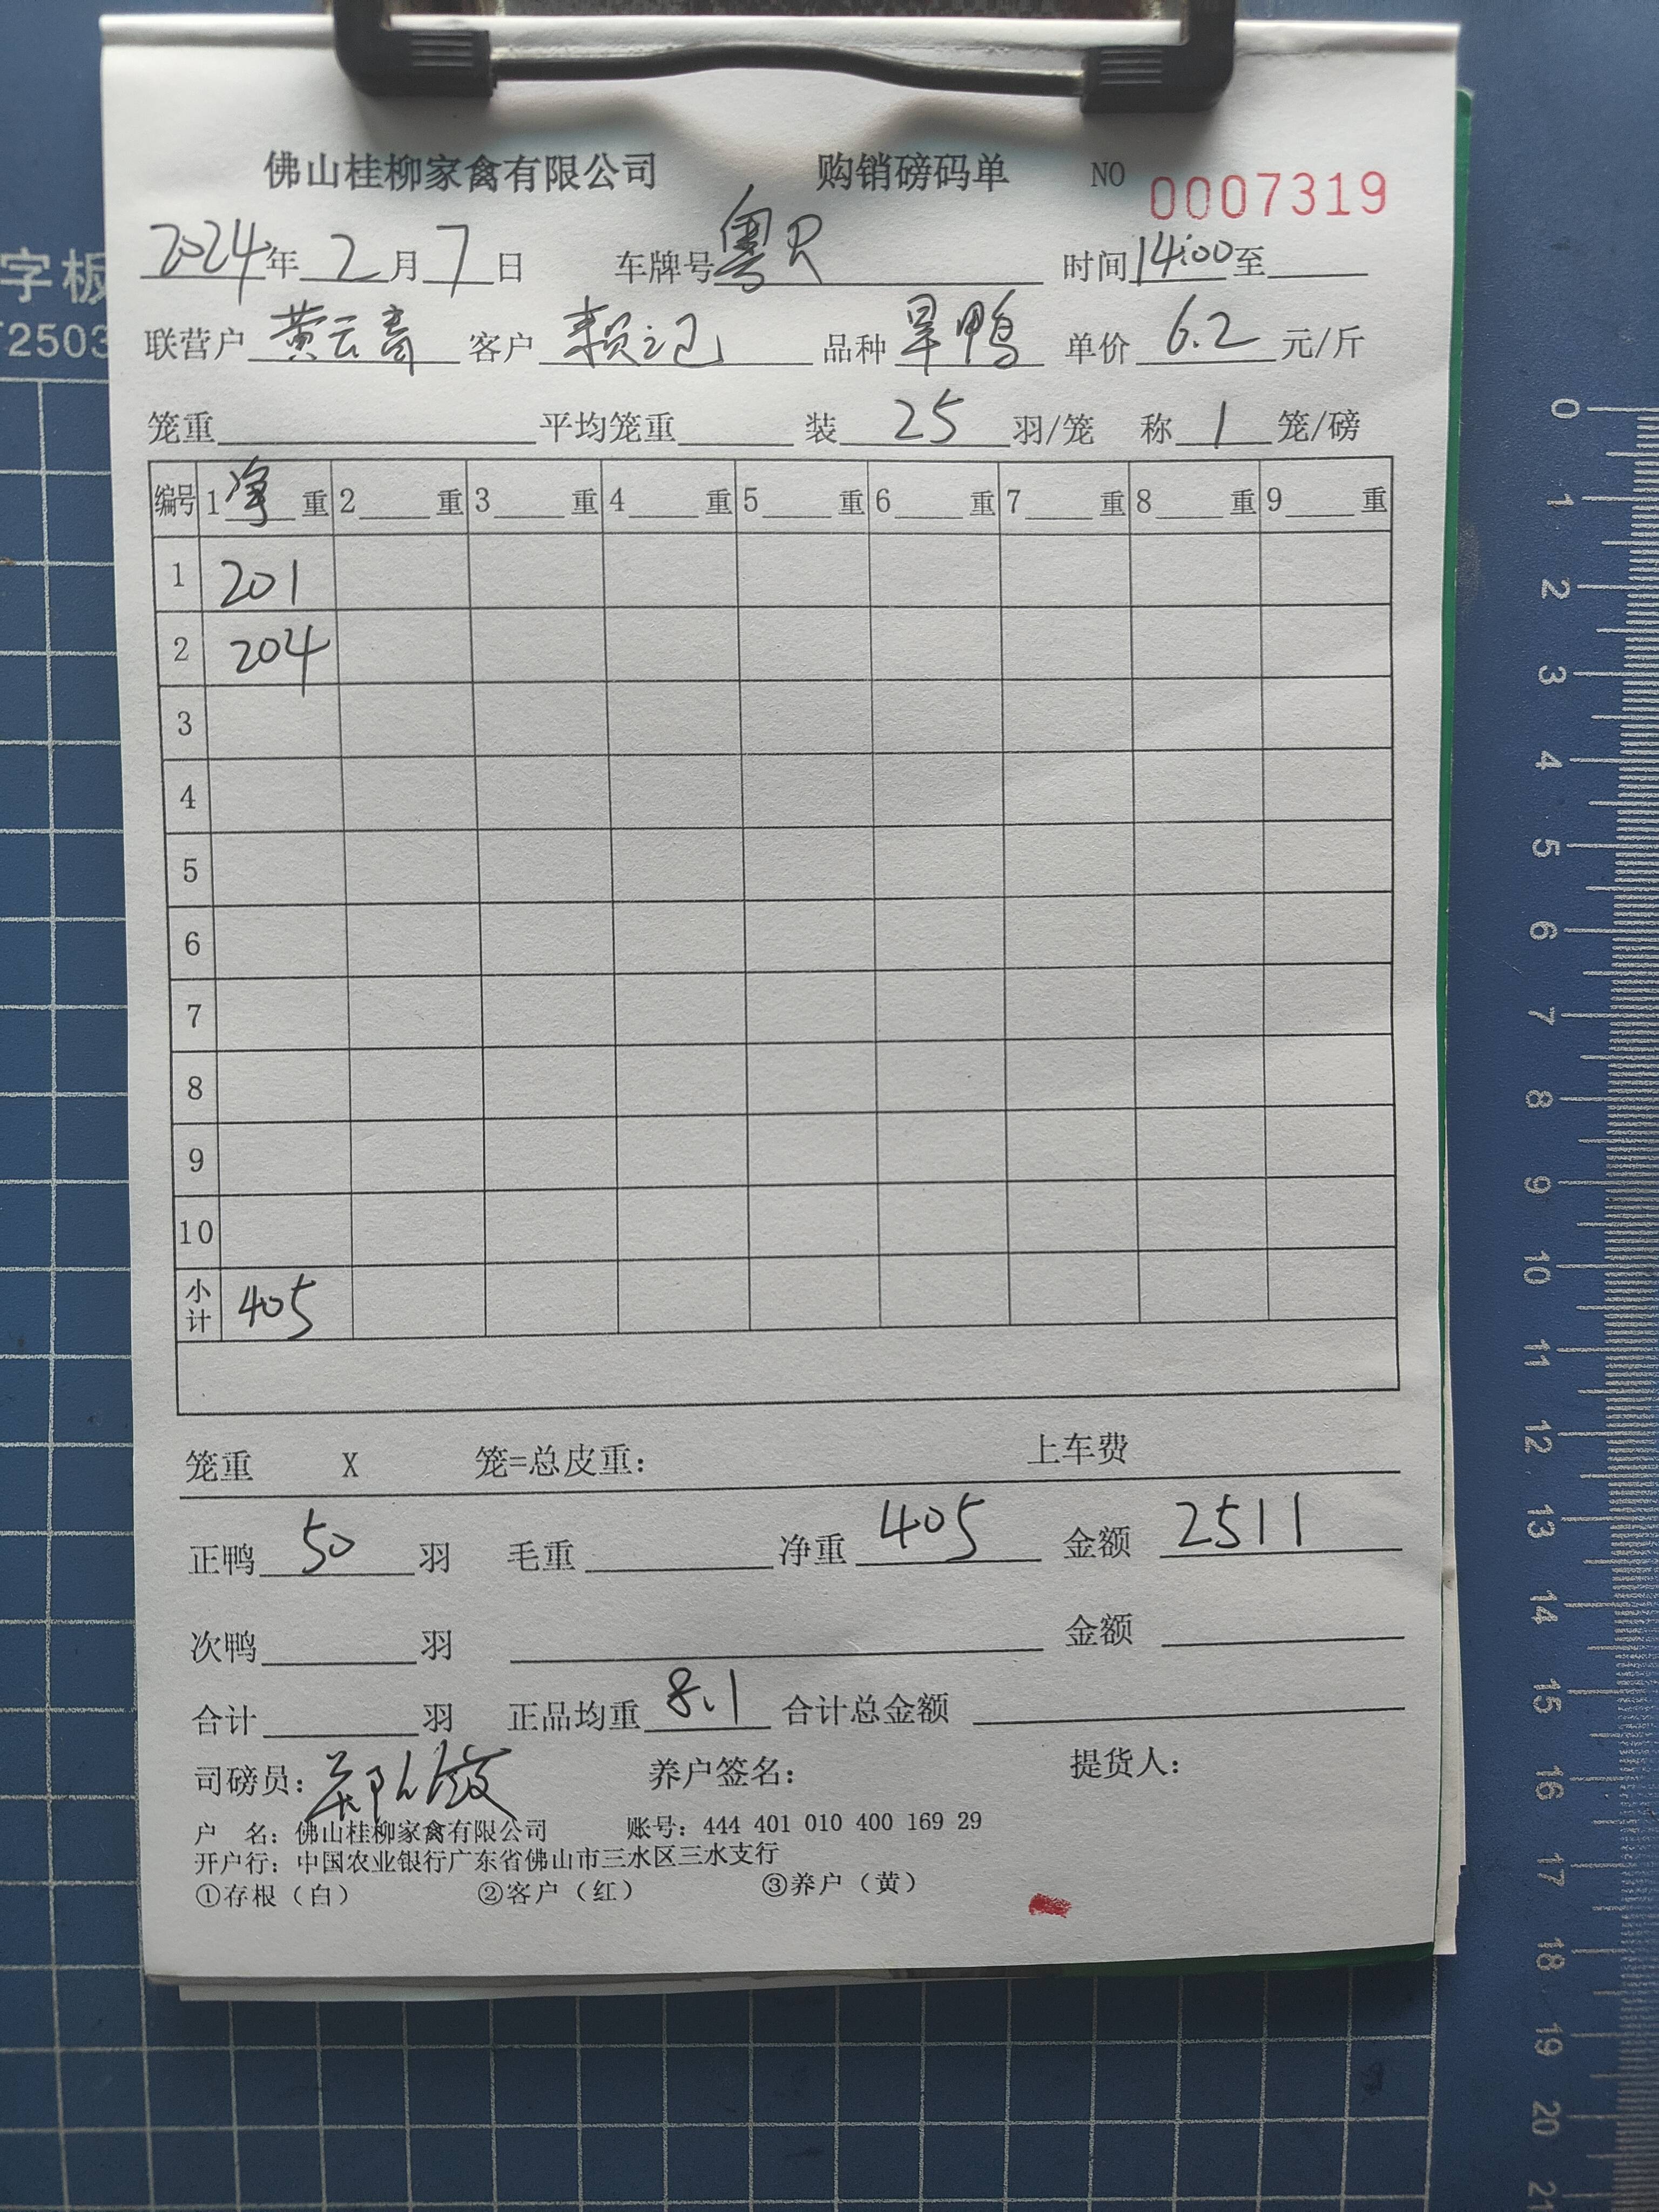 佛山桂柳家禽有限公司 购销磅码单 NO 0007319
2024年2月7日 车牌号粤R 时间14:00至
联营户 黄云嵩 客户 赖记 品种 旱鸭 单价 6.2 元/斤
笼重 平均笼重 装 25 羽/笼 称 1 笼/磅
编号 1净重 2 重 3 重 4 重 5 重 6 重 7 重 8 重 9 重
1 201
2 204
3
4
5
6
7
8
9
10
小计 405
笼重 X 笼=总皮重： 上车费
正鸭 50 羽 毛重 净重 405 金额 2511
次鸭 羽 金额
合计 羽 正品均重 8.1 合计总金额
司磅员： 养户签名： 提货人：
户 名：佛山桂柳家禽有限公司 账号：444 401 010 400 169 29
开户行：中国农业银行广东省佛山市三水区三水支行
①存根（白） ②客户（红） ③养户（黄）
字板
2503
0
1
2
3
4
5
6
7
8
9
10
11
12
13
14
15
16
17
18
19
20
21